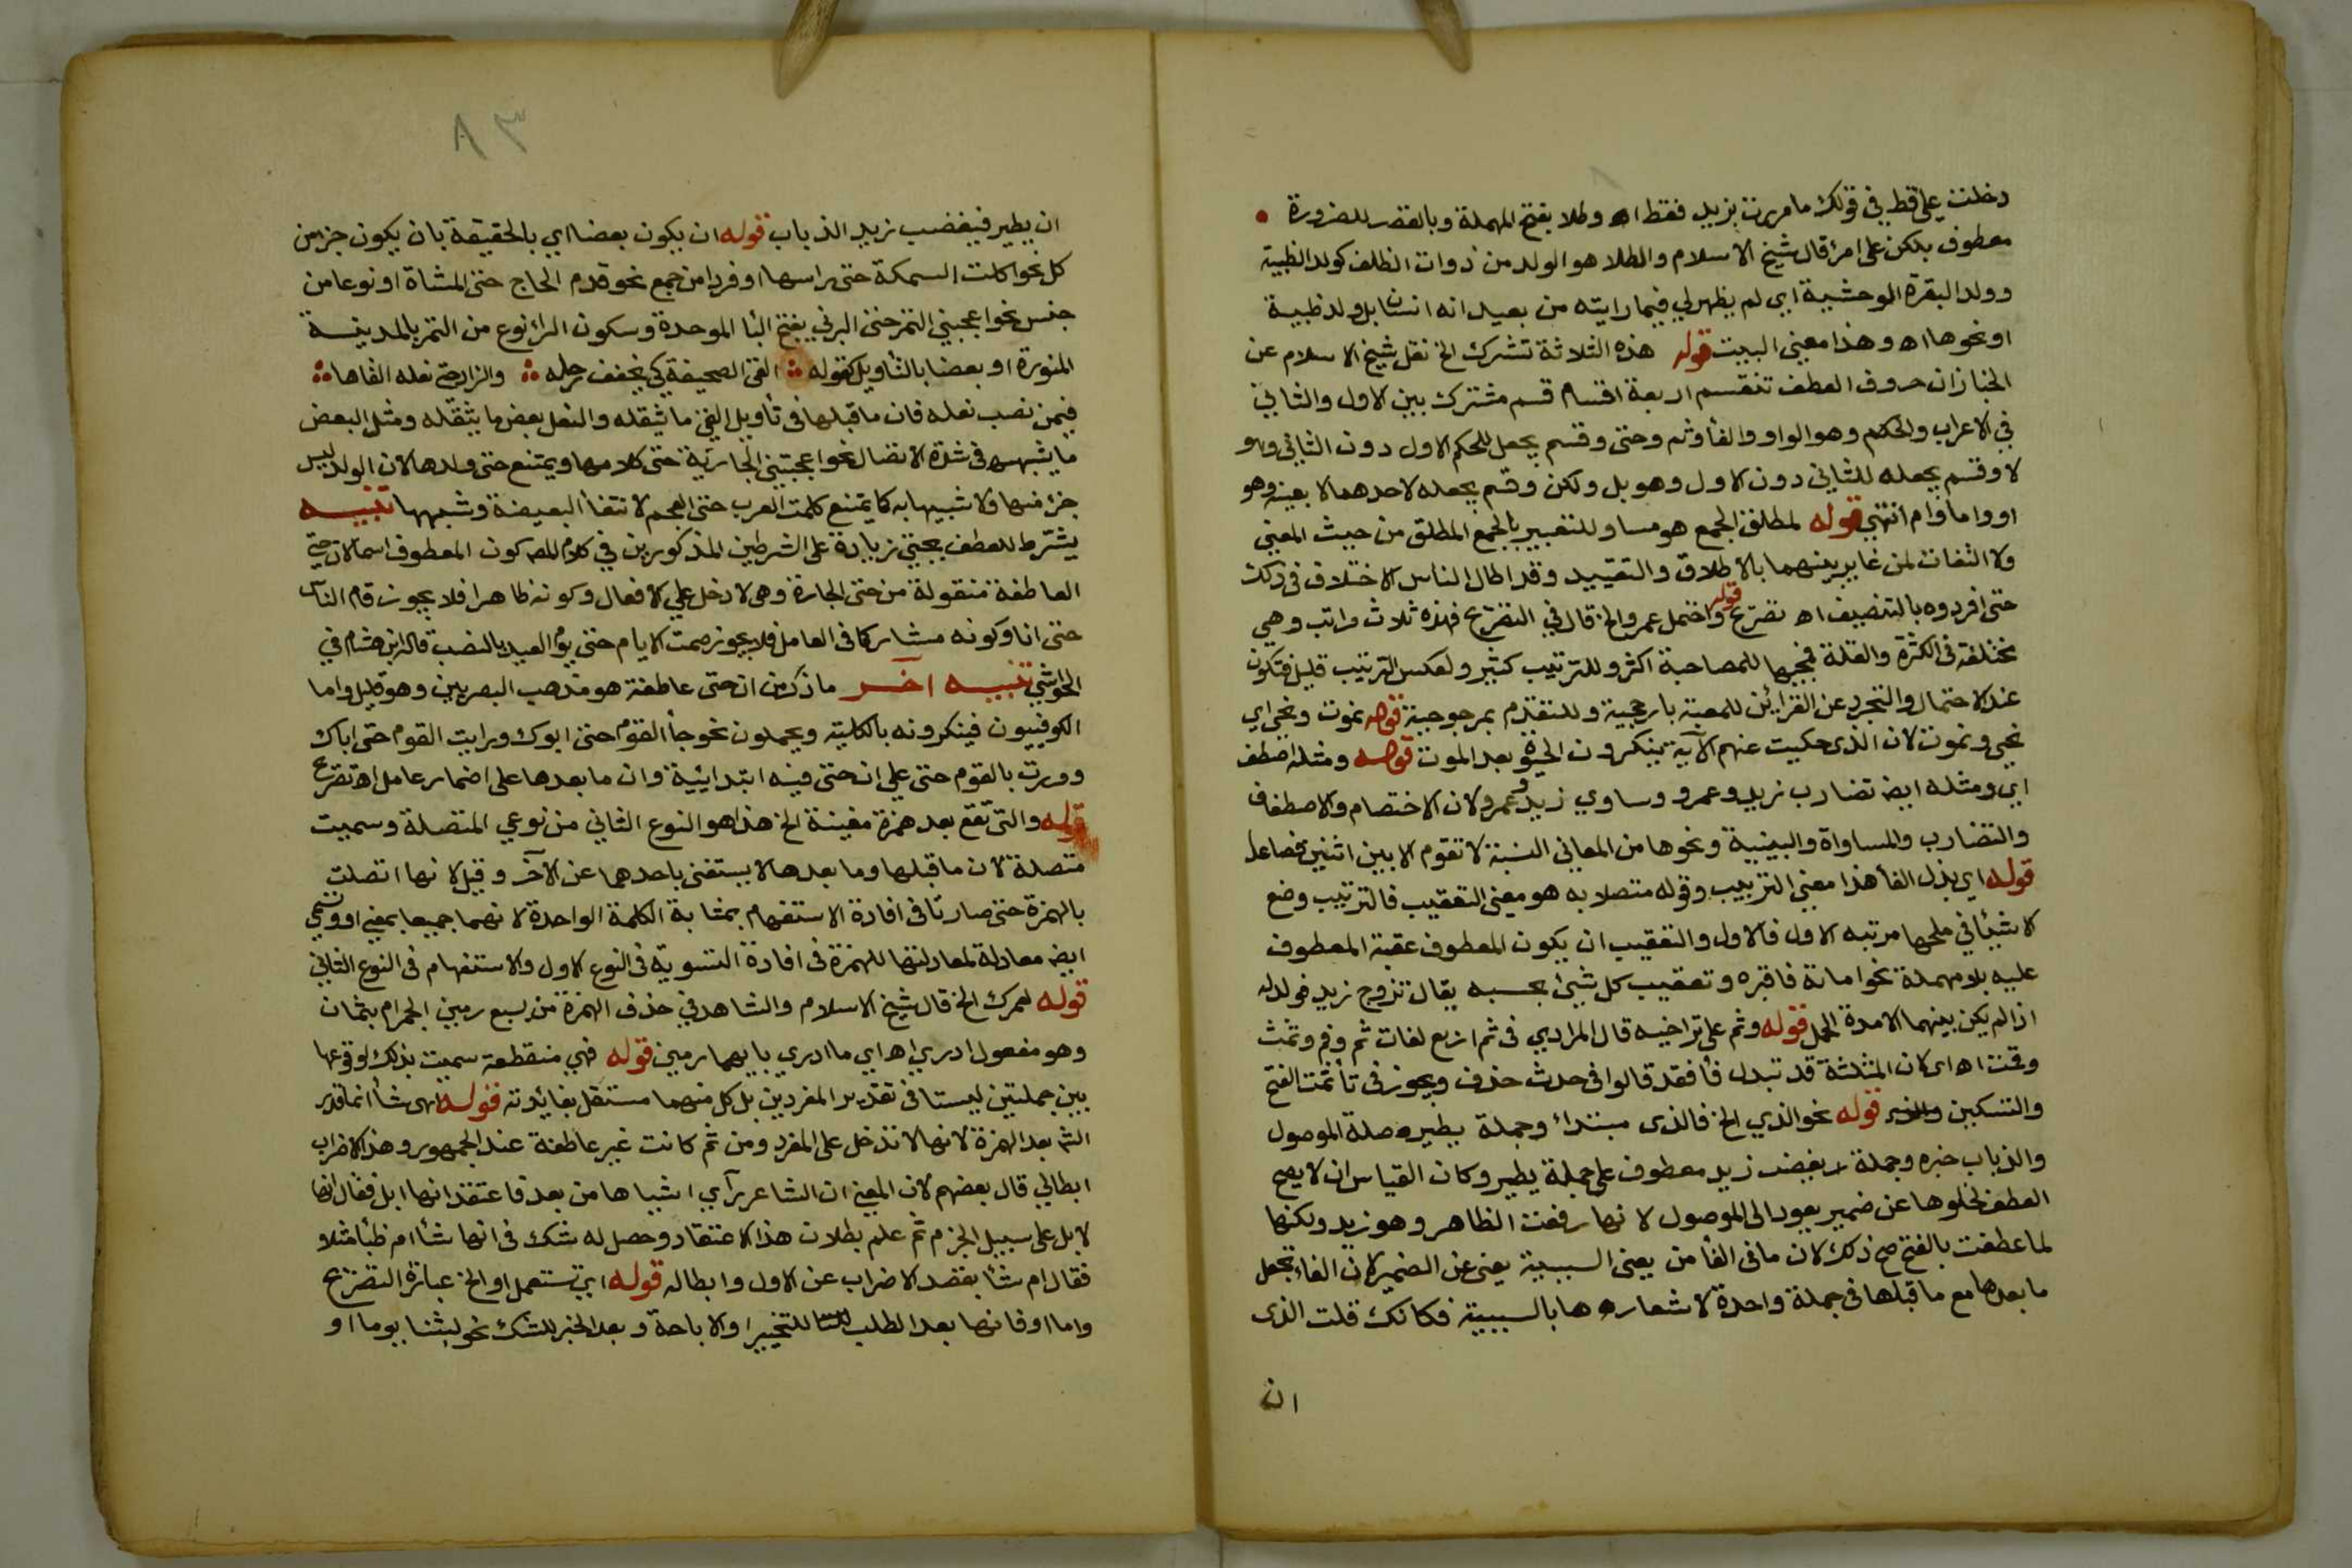 دخلت على قط في قولك ما مررت بزيد فقط اه وطلا بفتح المهملة وبالقصر للضرورة
معطوف بلكن على امرئ قال شيخ الاسلام والطلا هو الولد من ذوات الظلف كولد الظبية
وولد البقرة الوحشية اي لم يظهر لي فيما رايته من بعيد انه انسان بل ولد ظبية
او نحوها اه وهذا معنى البيت قوله هذه الثلاثة تشرك الخ نقل شيخ الاسلام عن
الخباز ان حروف العطف تنقسم اربعة اقسام قسم مشترك بين الاول والثاني
في الاعراب والحكم وهو الواو والفأ وثم وحتى وقسم يجعل الحكم للاول دون الثاني وهو
لا وقسم يجعله للثاني دون الاول وهو بل ولكن وقسم يجعله لاحدهما لا بعينه وهو
او واما وام انتهى قوله لمطلق الجمع هو مساو للتعبير بالجمع المطلق من حيث المعنى
ولا التفات لمن غاير بينهما بالاطلاق والتقييد وقد اطال الناس الاختلاف في ذلك
حتى افردوه بالتصنيف اه تصريح قوله واختمل عمرو الخ قال في التصريح فهذه ثلاث مراتب وهي
مختلفة في الكثرة والقلة فمجيها للمصاحبة اكثر وللترتيب كثير ولعكس الترتيب قليل فتكون
عند الاحتمال والتجرد عن القرائن للمعية بارجحية وللتقدم بمرجوحية قوله نموت ونحي اي
نحي ونموت لان الذى حكيت عنهم الآية ينكرون الحيوة بعد الموت قوله ومثله اصطف
اي ومثله ايض تضارب زيد وعمرو وساوي زيد وعمرو لان الاختصام والاصطفاف
والتضارب والمساواة والبينية ونحوها من المعاني النسبية لا تقوم الا بين اثنين فصاعدا
قوله اي بذل الفأ هذا معنى الترتيب وقوله متصلا به هو معنى التعقيب فالترتيب وضع
الاشيا في محلها مرتبه الاول فالاول والتعقيب ان يكون المعطوف عقبة المعطوف
عليه بلا مهملة نحو اماته فاقبره وتعقيب كل شيئ بحسبه يقال تزوج زيد فولد له
اذا لم يكن بينهما الا مدة الحمل قوله وثم على تراخيه قال المرادي في ثم اربع لغات ثم وفم وثمت
وثمت اه اى كان المثلثة قد تبدل فأ فقد قالوا في جدث جدف ويجوز في تأ ثمت الفتح
والتسكين قوله نحو الذي الخ فالذى مبتدأ وجملة يطير صلة الموصول
والذباب خبره وجملة يغضب زيد معطوف على جملة يطير وكان القياس ان لا يصح
العطف لخلوها عن ضمير يعود الى الموصول لانها رفعت الظاهر وهو زيد ولكنها
لما عطفت بالفتح صح ذلك لان ما في الفأ من يعنى السببية يغنى عن الضمير لان الفاء تجعل
ما بعدها مع ما قبلها في جملة واحدة لاشعارها بالسببية فكانك قلت الذى
ان
٨٣
ان يطير فيغضب زيد الذباب قوله ان يكون بعضا اي بالحقيقة بان يكون جزء من
كل نحو اكلت السمكة حتى راسها او فردا من جمع نحو قدم الحاج حتى المشاة او نوعا من
جنس نحو اعجبني التمر حتى البرني بفتح البأ الموحدة وسكون الرا نوع من التمر بالمدينة
المنورة او بعضا بالتأويل كقوله القى الصحيفة كي يخفف رحله والزاد حتى نعله القاها
فيمن نصب نعله فان ما قبلها في تأويل القى ما يثقله والنعل بعض ما يثقله ومثل البعض
ما يشبهه في شدة الاتصال نحو اعجبتني الجارية حتى كلامها ويمتنع حتى ولدها لان الولد ليس
جزء منها ولا شبيها به كما يمتنع كلمت العرب حتى العجم لانتفأ البعضية وشبهها تنبيه
يشترط للعطف بحتى زيادة على الشرطين المذكورين في كلام المص كون المعطوف اسما لان حتى
العاطفة منقولة من حتى الجارة وهي لا تدخل على الافعال وكونه ظاهرا فلا يجوز قام الناس
حتى انا وكونه مشاركا في العامل فلا يجوز صمت الايام حتى يوم العيد بالنصب قاله ابن هشام في
الحواشي تنبيه آخر ما ذكر من ان حتى عاطفة هو مذهب البصريين وهو قليل واما
الكوفييون فينكرونه بالكلية ويحملون نحو جأ القوم حتى ابوك ورايت القوم حتى اباك
ومررت بالقوم حتى على ان حتى فيه ابتدائية وان ما بعدها على اضمار عامل اه تصريح
قوله والتى تقع بعد همزة مغينة الخ هذا هو النوع الثاني من نوعي المتصلة وسميت
متصلة لان ما قبلها وما بعدها لا يستغنى باحدهما عن الآخر وقيل لانها اتصلت
بالهمزة حتى صارتا في افادة الاستفهام بمثابة الكلمة الواحدة لانهما جميعا بمعنى او وتسمى
ايض معادلة لمعادلتها للهمزة في افادة التسوية في النوع الاول والاستفهام في النوع الثاني
قوله لعمرك الخ قال شيخ الاسلام والشاهد في حذف الهمزة من بسبع رمين الجمر ام بثمان
وهو مفعول ادري اه اي ما ادري بايهما رمين قوله فهي منقطعة سميت بذلك لوقوعها
بين جملتين ليستا في تقدير المفردين بل كل منهما مستقل بفائدته قوله اهى شأ انما قدر
الثم بعد الهمزة لانها لا تدخل على المفرد ومن ثم كانت غير عاطفة عند الجمهور وهذا الاضراب
ابطالي قال بعضهم لان المعنى ان الشاعر رآي اشباها من بعد فاعتقد انها ابل فقال انها
لابل على سبيل الجزم ثم علم بطلان هذا الاعتقاد وحصل له شك في انها شأ ام ظبأ مثلا
فقال ام شأ بقصد الاضراب عن الاول وابطاله قوله اي تستعمل او الخ عبارة التصريح
واما او فانها بعد الطلب للتخيير او الاباحة وبعد الخبر للشك نحو لبثنا يوما او